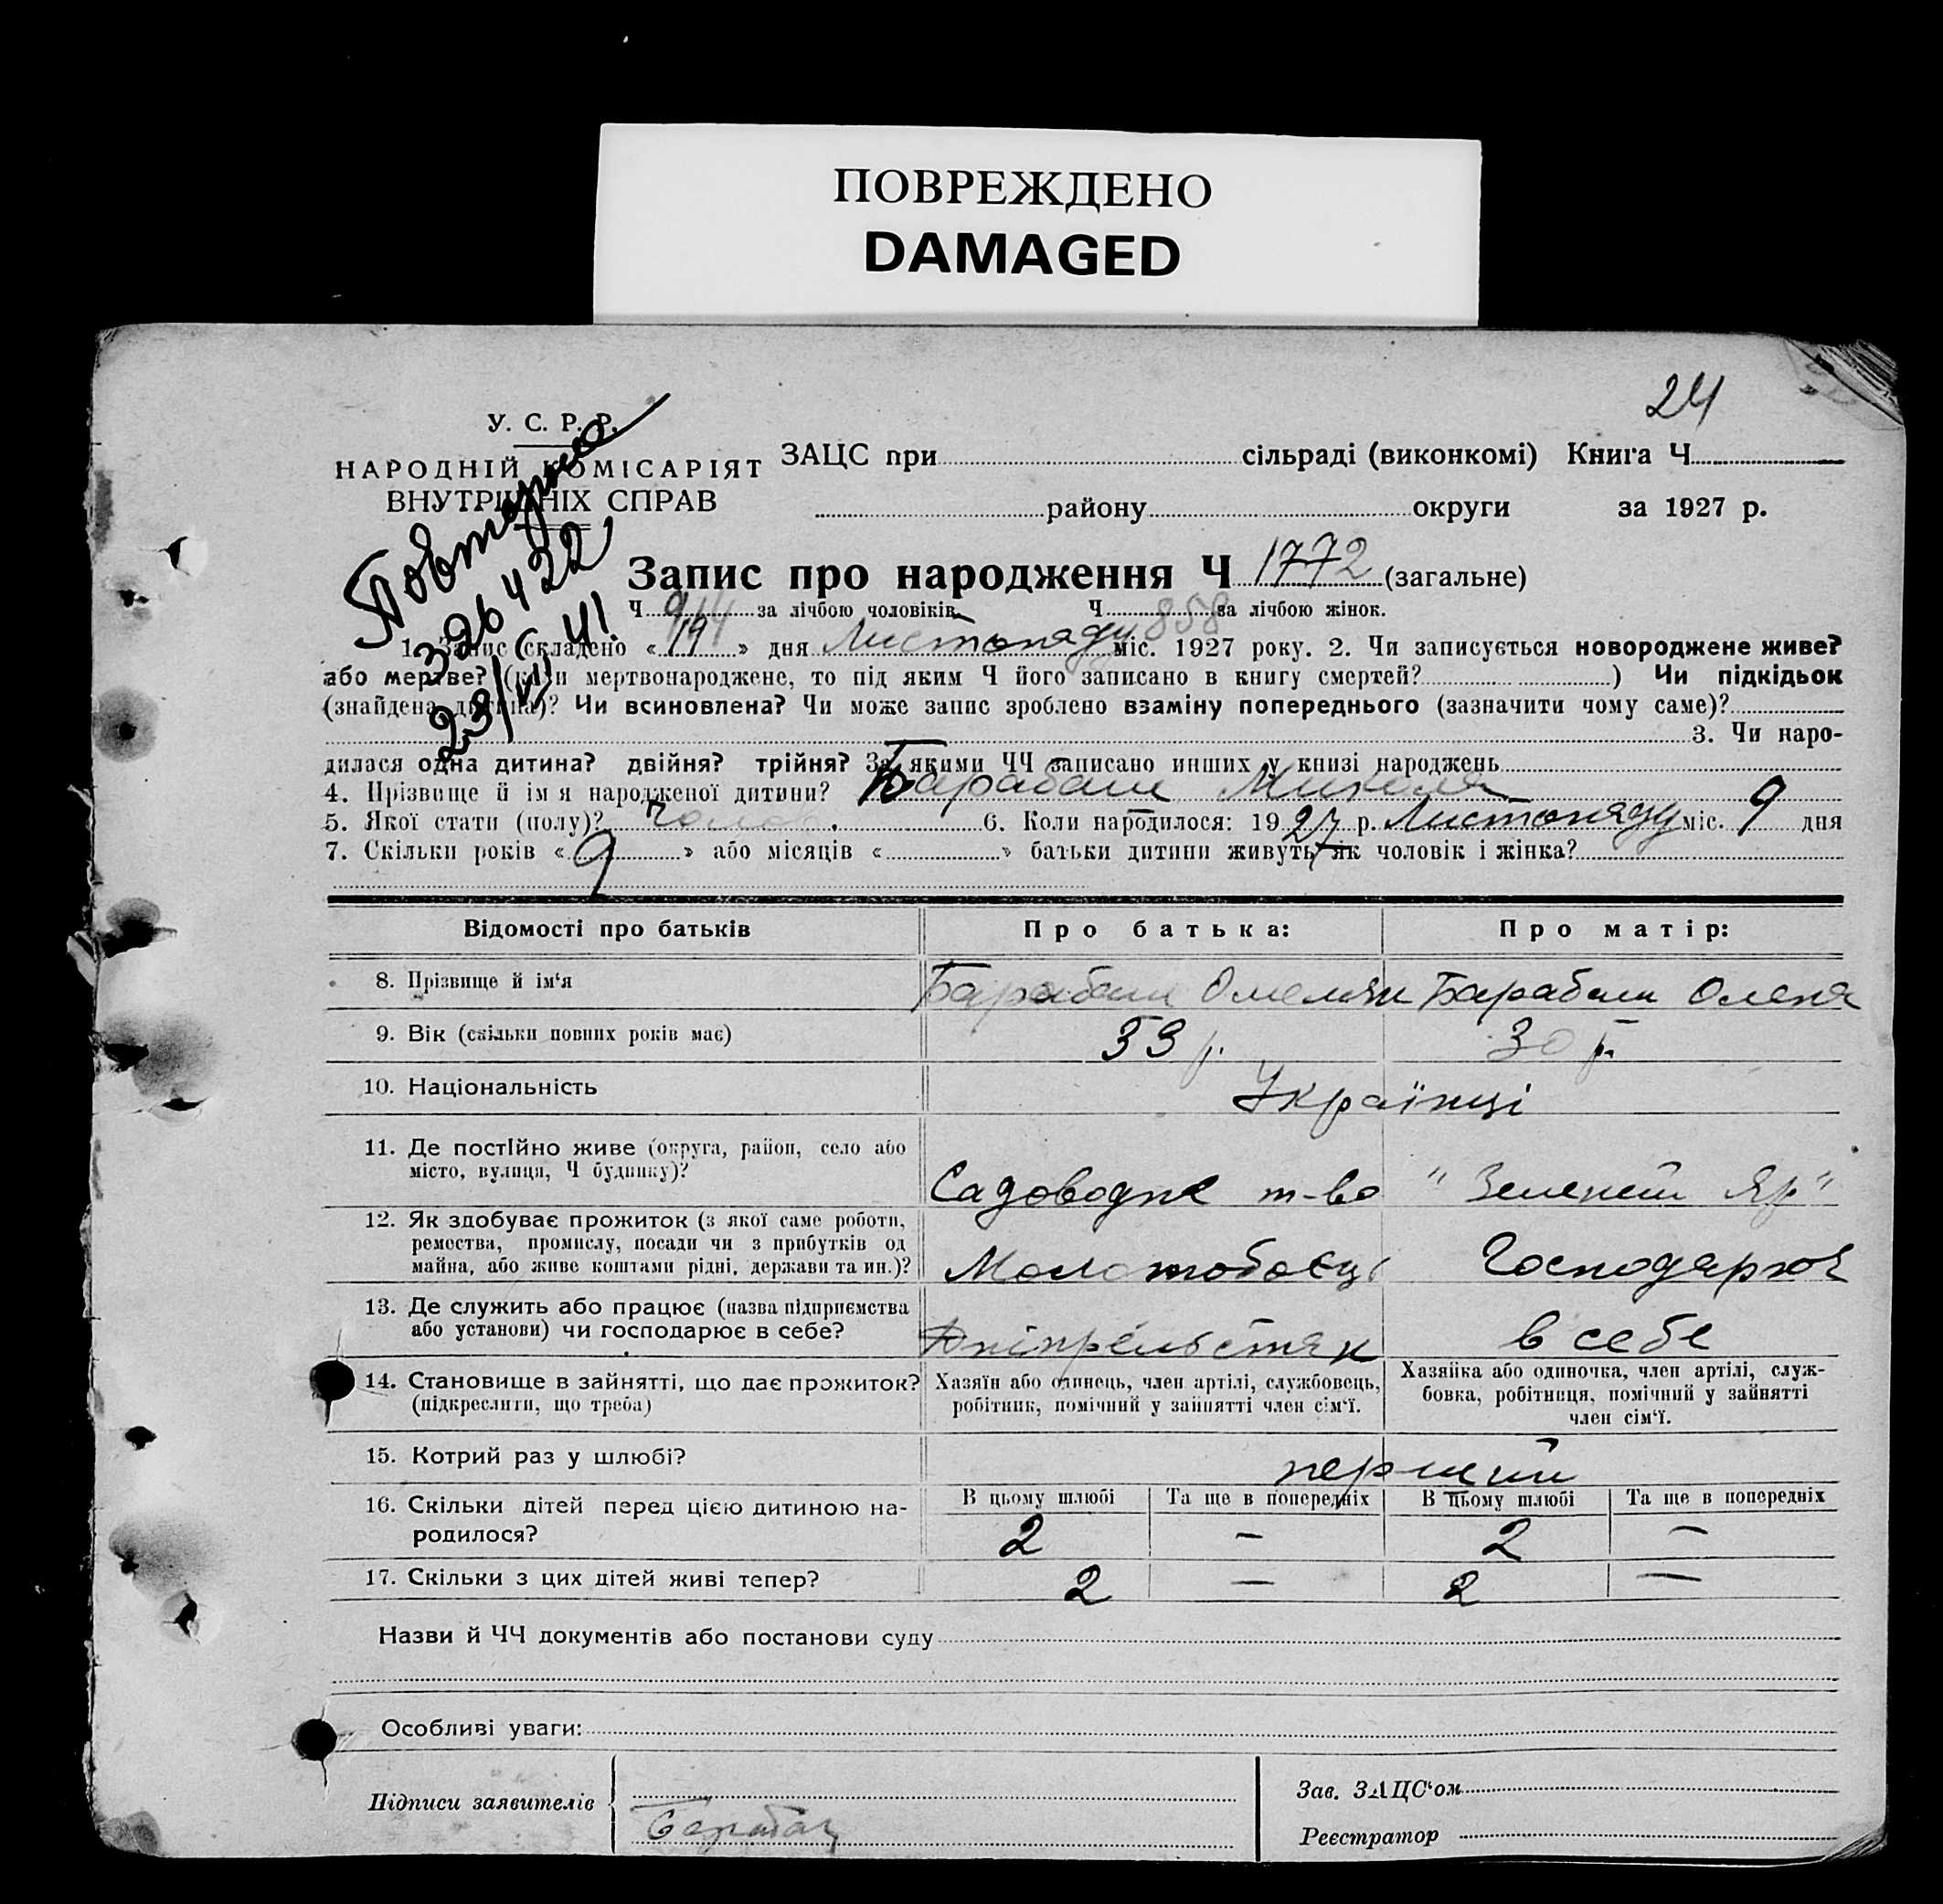 ПОВРЕЖДЕНО
DAMAGED
24
У. С. Р. Р.
НАРОДНІЙ КОМІСАРІЯТ
ВНУТРІШНІХ СПРАВ
Повторно
326422
23/VI 41.
ЗАЦС при сільраді (виконкомі) Книга Ч
району округи за 1927 р.
Запис про народження Ч 1772 (загальне)
Ч 914 за лічбою чоловіків. Ч 858 за лічбою жінок.
1. Запис складено « 19 » дня Листопаду міс. 1927 року. 2. Чи записується новороджене живе?
або мертве? (коли мертвонароджене, то під яким Ч його записано в книгу смертей? ) Чи підкідьок
(знайдена дитина)? Чи всиновлена? Чи може запис зроблено взаміну попереднього (зазначити чому саме)?
3. Чи наро-
дилася одна дитина? двійня? трійня? За якими ЧЧ записано инших у книзі народжень
4. Прізвище й ім я народженої дитини? Барабаш Микола
5. Якої стати (полу)? Чолов. 6. Коли народилося: 1927 р. Листопаду міс. 9 дня
7. Скільки років « 9 » або місяців « » батьки дитини живуть як чоловік і жінка?
Відомості про батьків Про батька: Про матір:
8. Прізвище й ім‘я Барабаш Омелян Барабаш Олена
9. Вік (скільки повних років має) 33 р. 30 р.
10. Національність Українці
11. Де постійно живе (округа, район, село або
місто, вулиця, Ч будинку)?
Садоводче т-во "Зелений Яр"
12. Як здобуває прожиток (з якої саме роботи,
ремества, промислу, посади чи з прибутків од
майна, або живе коштами рідні, держави та ин.)?
Молотобоєць Господарює
13. Де служить або працює (назва підприємства
або установи) чи господарює в себе?
в себе
14. Становище в зайнятті, що дає прожиток?
(підкреслити, що треба)
Хазяїн або одинець, член артілі, службовець,
робітник, помічний у зайнятті член сім‘ї.
Хазяйка або одиночка, член артілі, служ-
бовка, робітниця, помічний у зайнятті
член сім‘ї.
15. Котрий раз у шлюбі? перший
16. Скільки дітей перед цією дитиною на-
родилося?
В цьому шлюбі Та ще в попередніх В цьому шлюбі Та ще в попередніх
2 – 2 –
17. Скільки з цих дітей живі тепер? 2 — 2 —
Назви й ЧЧ документів або постанови суду
Особливі уваги:
Підписи заявителів
Барабаш
Зав. ЗАЦС‘ом
Реєстратор